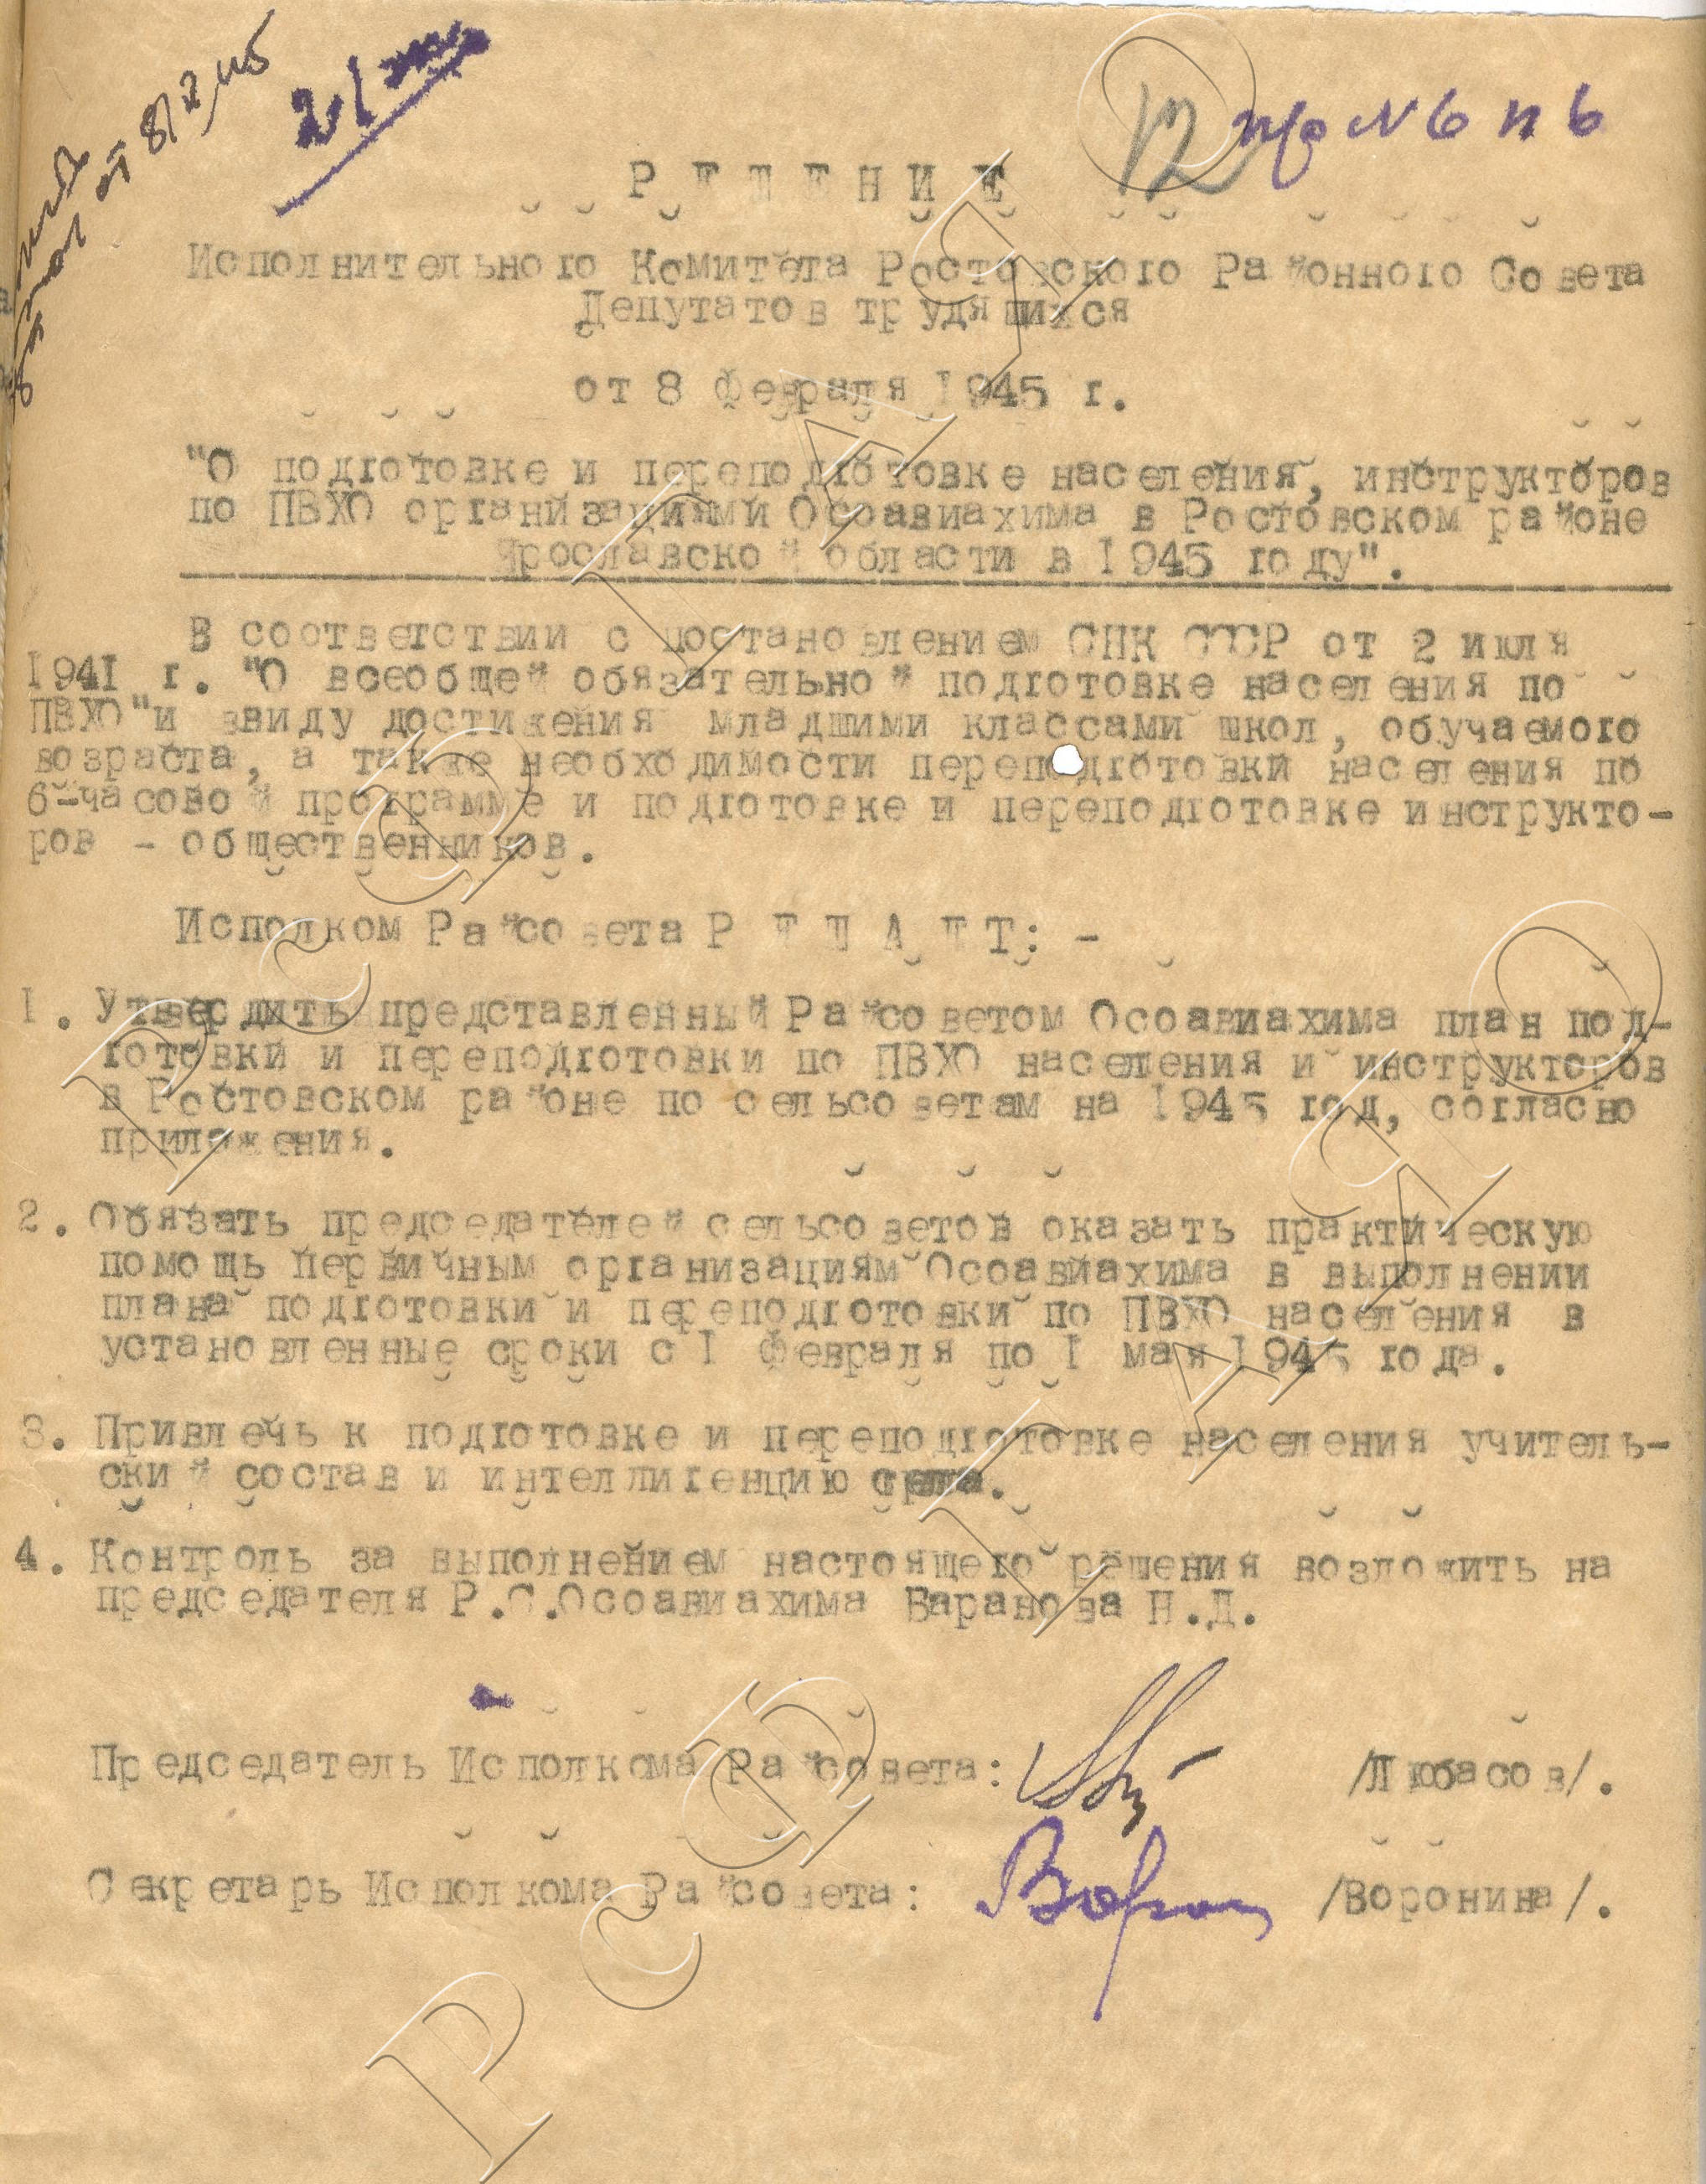 от 8/2 45
21
12
пр № 6 п 6
Р Е Ш Е Н И Е
Исполнительного Комитета Ростовского Районного Совета
Депутатов трудящихся
от 8 февраля 1945 г.
"О подготовке и переподготовке населения, инструкторов
по ПВХО организациями Осоавиахима в Ростовском районе
Ярославской области в 1945 году".
В соответствии с постановлением СНК СССР от 2 июля
1941 г. "О всеобщей обязательной подготовке населения по
ПВХО" и ввиду достижения младшими классами школ, обучаемого
возраста, а также необходимости переподготовки населения по
6-часовой программе и подготовке и переподготовке инструкто-
ров - общественников.
Исполком Райсовета Р Е Ш А Е Т: -
1. Утвердить представленный Райсоветом Осоавиахима план под-
готовки и переподготовки по ПВХО населения и инструкторов
в Ростовском районе по сельсоветам на 1945 год, согласно
приложения.
2. Обязать председателей сельсоветов оказать практическую
помощь первичным организациям Осоавиахима в выполнении
плана подготовки и переподготовки по ПВХО населения в
установленные сроки с 1 февраля по 1 мая 1945 года.
3. Привлечь к подготовке и переподготовке населения учитель-
ский состав и интеллигенцию села.
4. Контроль за выполнением настоящего решения возложить на
председателя Р.С.Осоавиахима Баранова Н.Д.
Председатель Исполкома Райсовета: /Любасов/.
Секретарь Исполкома Райсовета: Ворон /Воронина/.
РсФ ГАЯО
РсФ ГАЯО